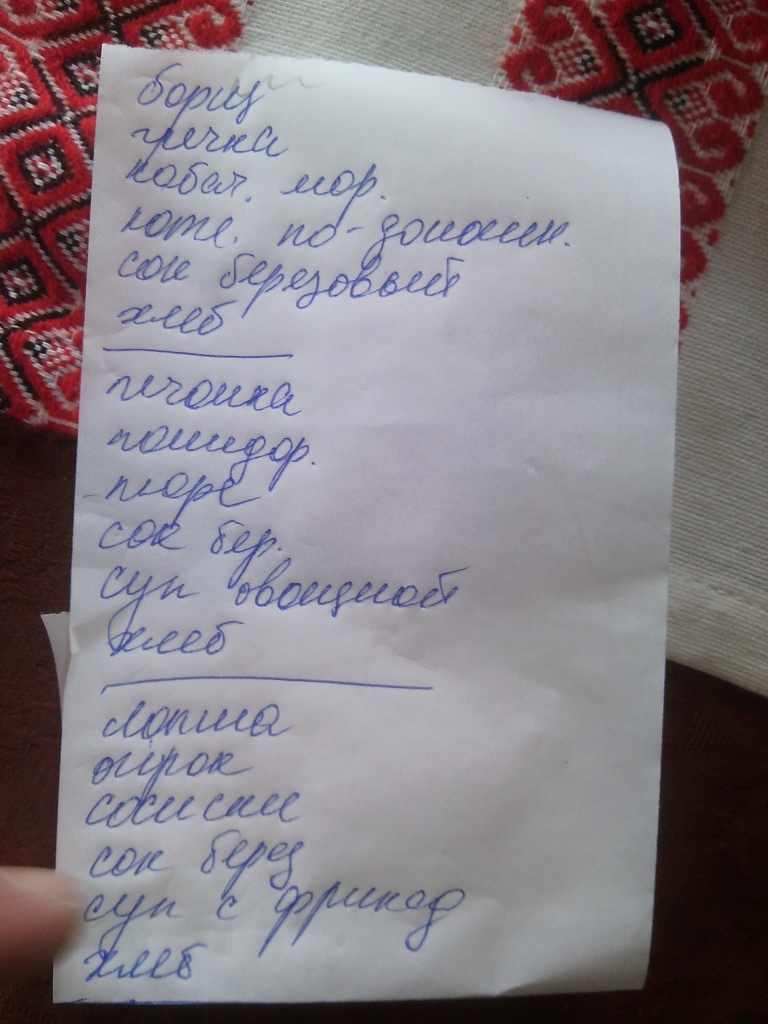 борщ
гречка
кабач. мор.
котл. по-домашн.
сок березовый
хлеб
печонка
помидор.
пюре
сок бер.
суп овощной
хлеб
лапша
огірок
сосиски
сок берез
суп с фрикад
хлеб